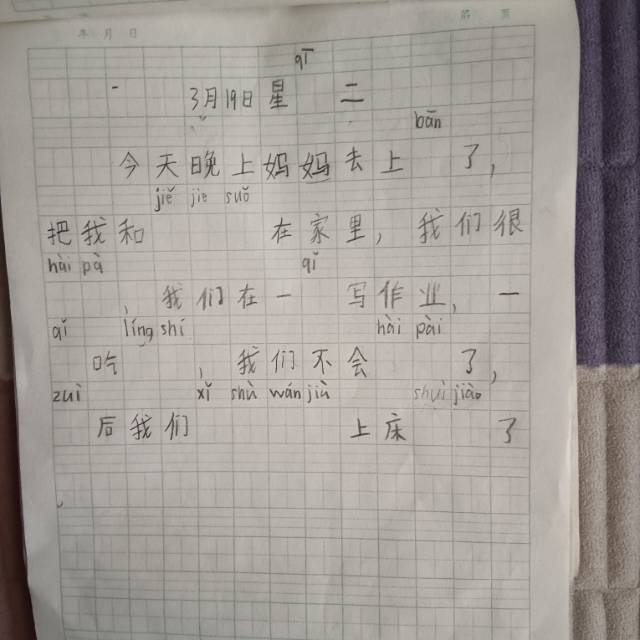 年 月 日 第 页
qī
3月19日星 二
bān
今天晚上妈妈去上 了，
jiě jie suǒ
把我和 在家里，我们很
hài pà qǐ
，我们在一 写作业，一
qǐ líng shí hài pài
吃 ，我们不会 了，
zuì xǐ shù wán jiù shuì jiào
后我们 上床 了